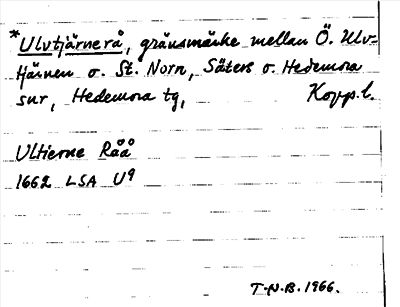 *Ulvtjärnerå, gränsmärke mellan Ö. Ulv-
tjärnen o. St. Norn, Säters o. Hedemora
snr, Hedemora tg, Kopp. l.
Ultierne Råå
1662 LSA U⁹
T.N.B. 1966.